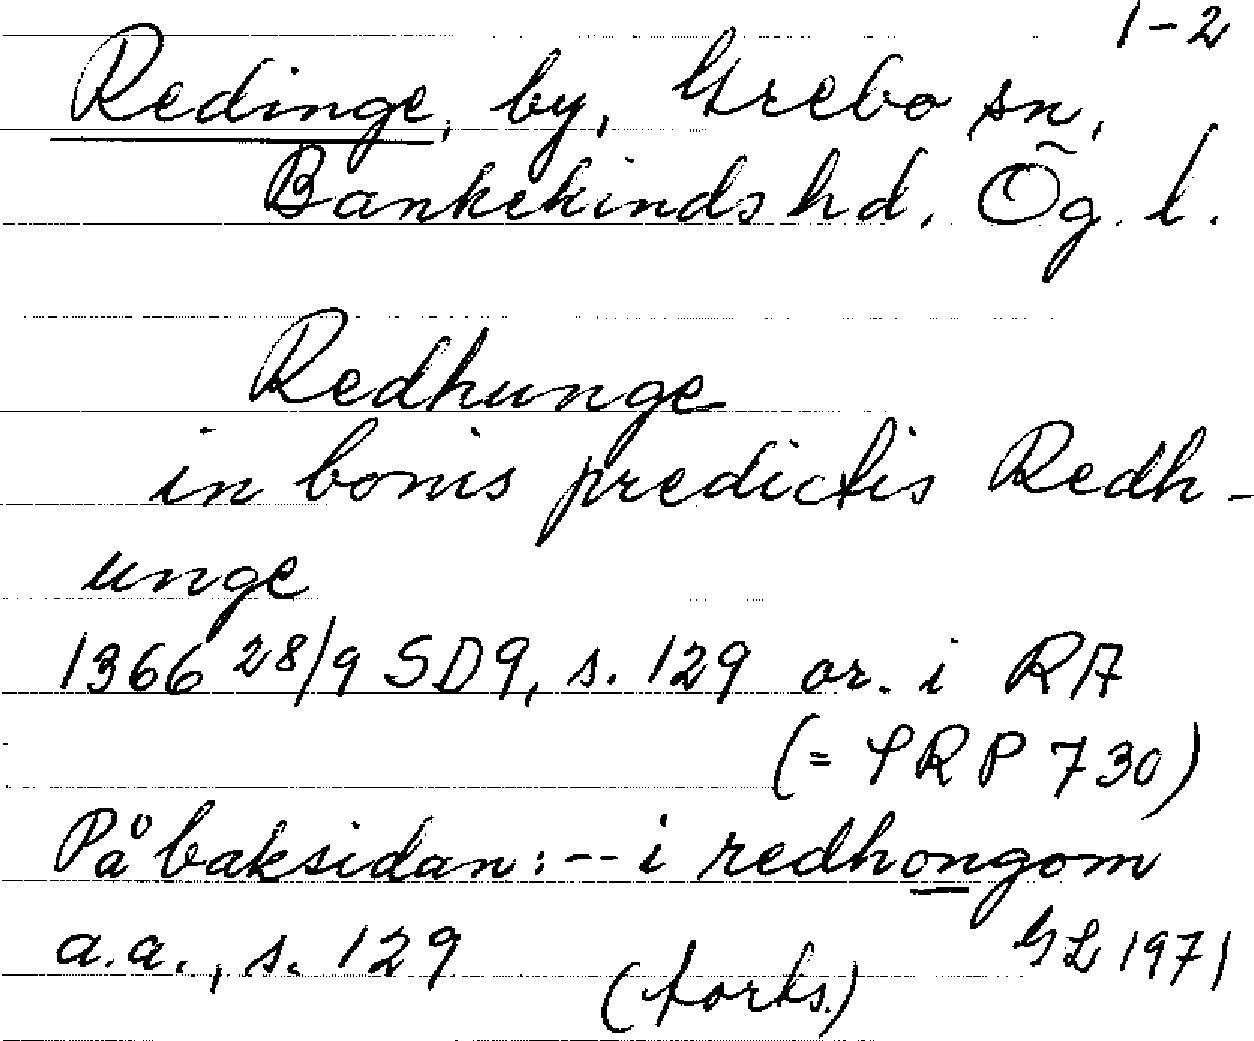 1-2
Redinge, by, Grebo sn,
Bankekinds hd, Ög. l.
Redhunge
in bonis predictis Redh-
unge
1366 28/9 SD9, s. 129 or. i RA
(= SRP 730)
På baksidan: -- i redhongom
a.a., s. 129 GL 1971
(forts.)